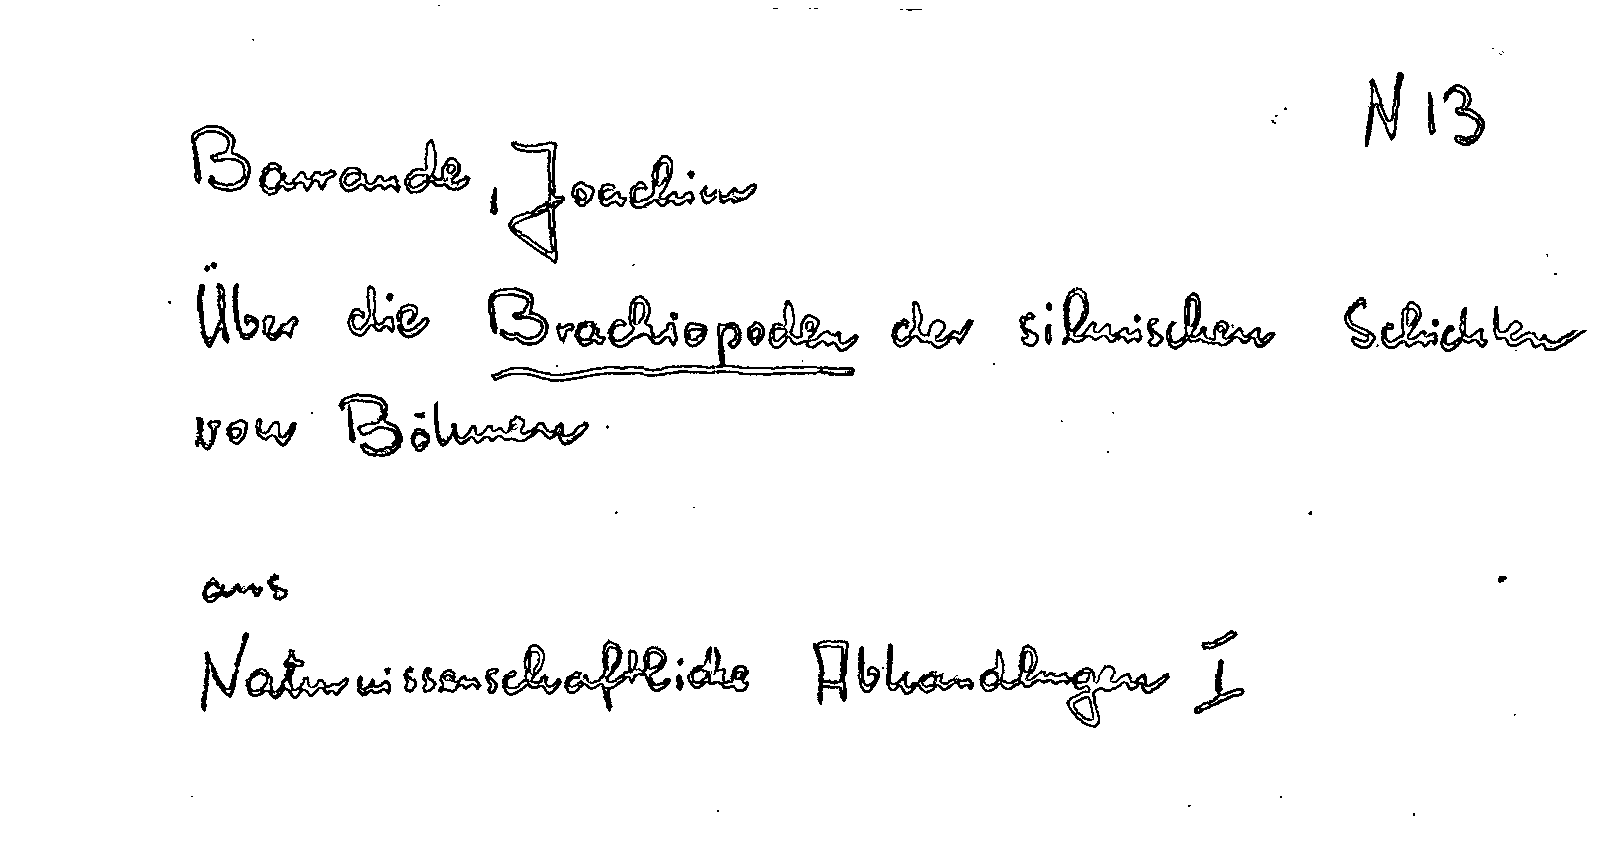 N 13
Barrande, Joachim
Über die Brachiopoden der silurischen Schichten
von Böhmen
aus
Naturwissenschaftliche Abhandlungen I